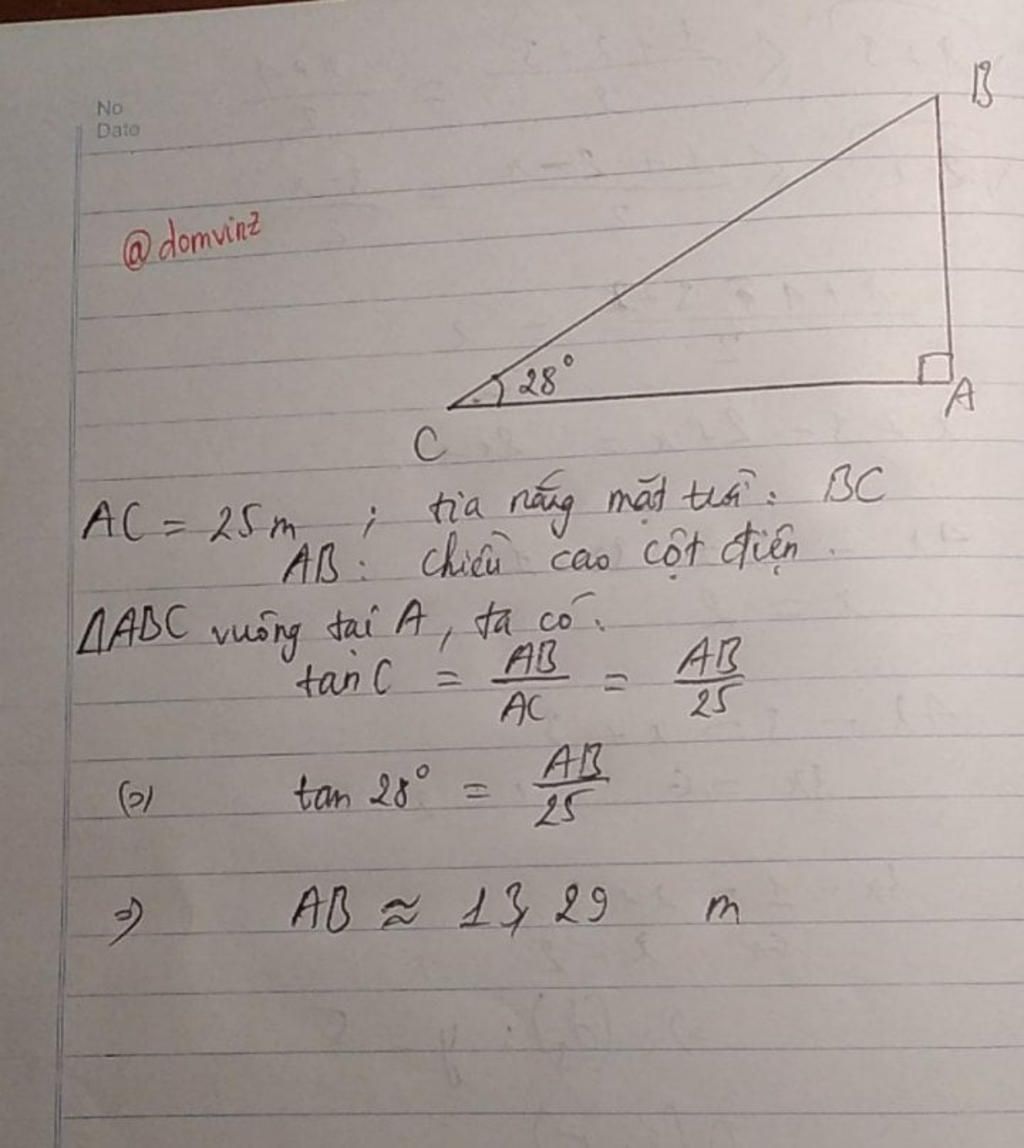 No
Date
@domvinz
B
28°
A
C
AC = 25m ; tia nắng mặt trời: BC
AB: chiều cao cột điện.
ΔABC vuông tại A, ta có:
tan C = AB/AC = AB/25
(=) tan 28° = AB/25
=) AB ≈ 13,29 m